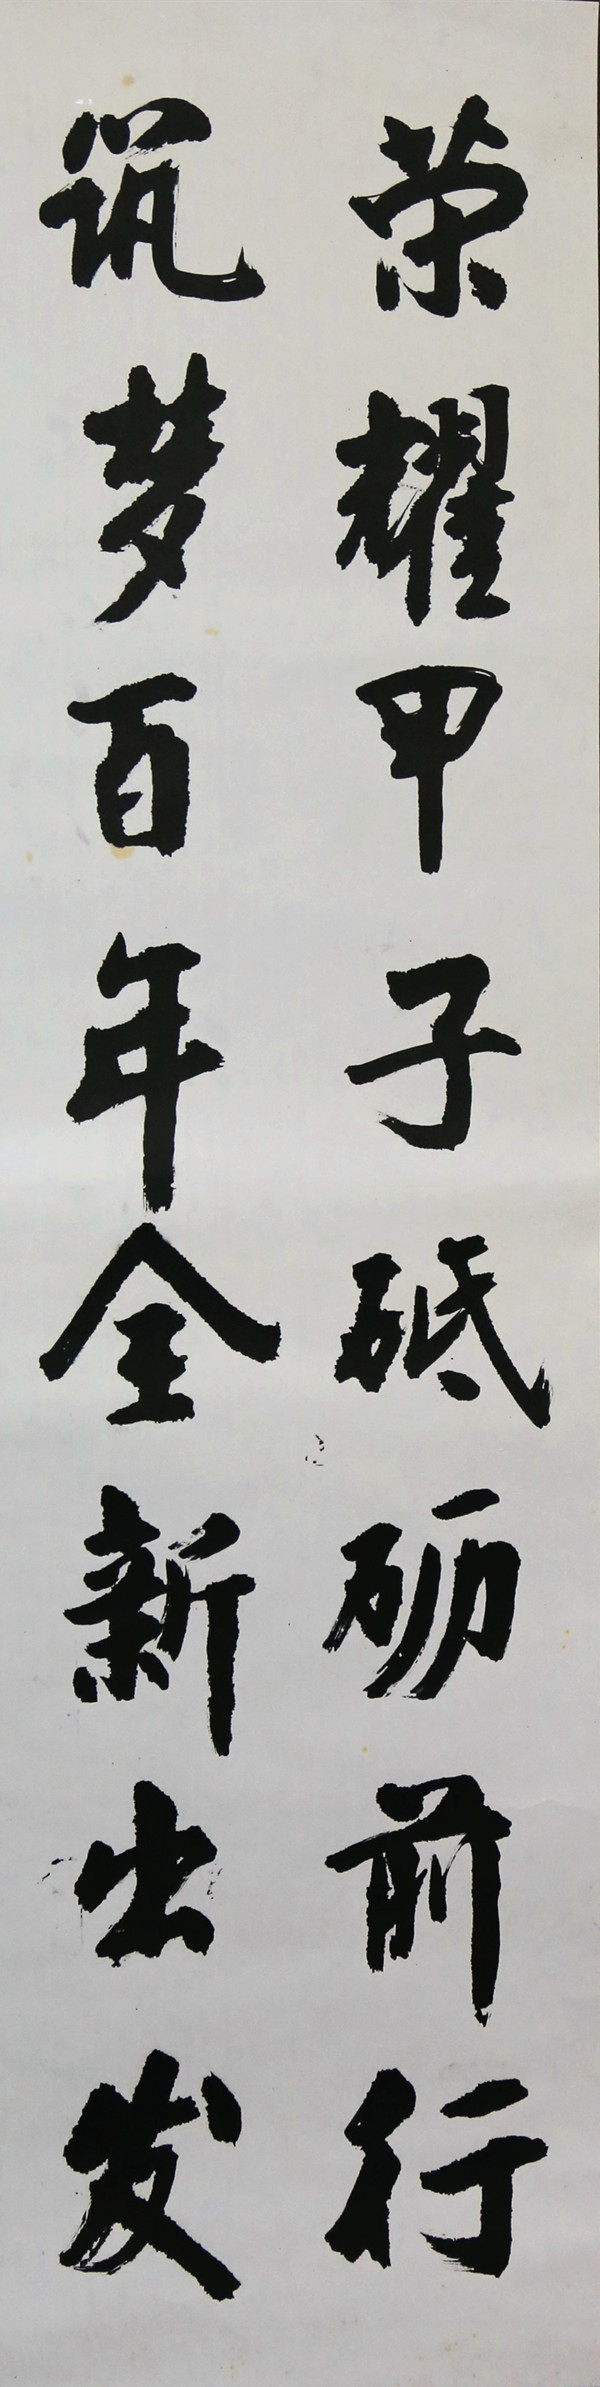 荣耀甲子砥砺前行
筑梦百年全新出发